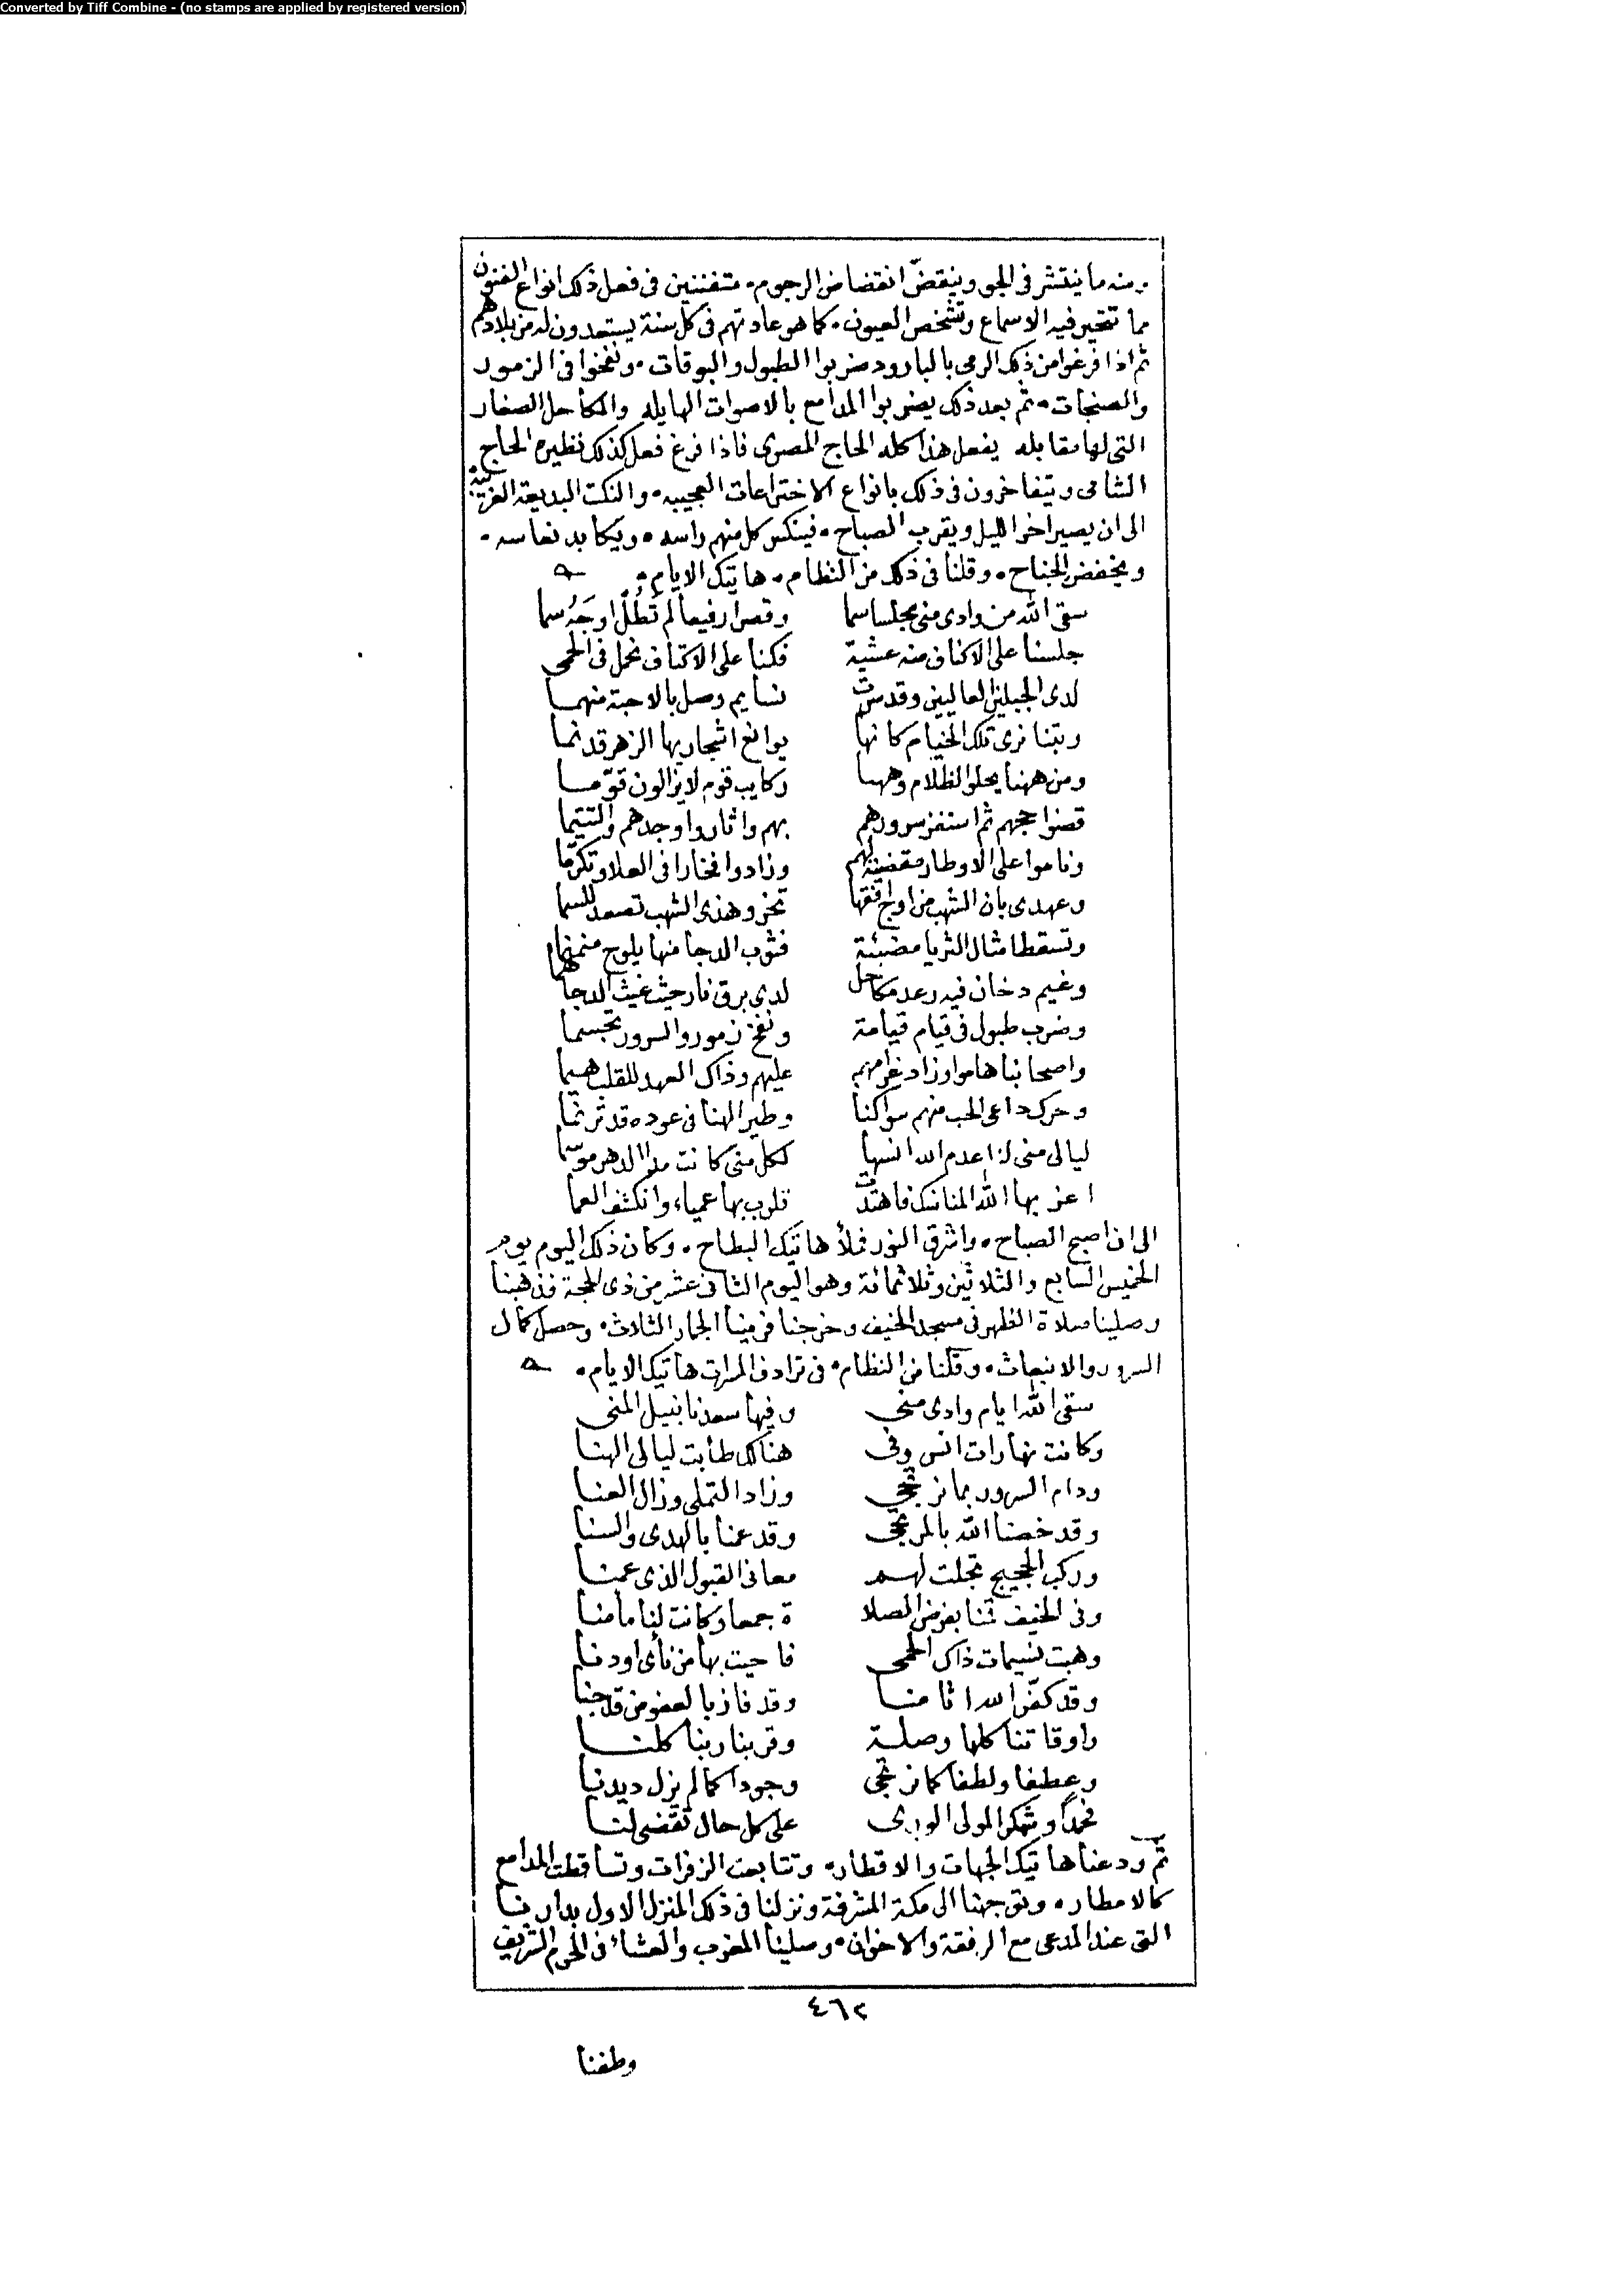 Converted by Tiff Combine - (no stamps are applied by registered version)
ومنه ما ينتشر في الجو وينقضّ انقضاض الرجوم٠ متفننين في فعل ذلك انواع الفنون
مما تتحير فيه الاسماع وتشخص العيون٠ كما هو عادتهم في كل سنة يستعدون له من بلادهم
ثم اذا فرغوا من ذلك الرمي بالبارود ضربوا الطبول والبوقات٠ ونفخوا في الزمور
والصنجات٠ ثم بعد ذلك يضربوا المدافع بالاصوات الهايله والمكاحل الصغار
التي لها مقابله يفعل هذا كله الحاج المصرى فاذا فرغ فعل كذلك نظيره الحاج
الشامى ويتفاخرون في ذلك بانواع الاختراعات العجيبه٠ والنكت البديعة الغريبة
الى ان يصير اخر الليل ويقرب الصباح٠ فينكس كل منهم راسه٠ ويكابد نعاسه٠
ويخفض الجناح٠ وقلنا في ذلك من النظام٠ هاتيك الايام٠
سقى الله من وادى منى مجلسا سما وقصرا رفيعا لم تطل اوجه سما
جلسنا على الاكناف منه عشية فكنا على الاكتاف نحمل في الحمى
لدى الجبلين العاليين وقد سرت نسايم وصل بالاحبة منهما
وبتنا نرى تلك الخيام كانها يوانع اشجار بها الزهر قد نما
ومن ههنا يحلو الظلام وههنا ركايب قوم لا يزالون قوّما
قضوا حجهم ثم استفز سرورهم بهم واثاروا وجدهم والتتيما
وناموا على الاوطار مقضية لهم وزادوا فخارا في العلا وتكرّما
وعهدى بان الشهب من اوج افقها تخر وهذى الشهب تصعد للسما
وتسقط امثال الثريا مضيئة فثوب الدجا منها يلوح منمنما
وغيم دخان فيه رعد مكاحل لدى برق نار حيث غيث الدجا هما
وضرب طبول في قيام قيامة ونفخ زمور والسرور تجسما
واصحابنا هاموا وزاد غرامهم عليهم وذاك العهد للقلب هيما
وحرك داعى الحب منهم سواكنا وطير الهنا في عوده قد ترنما
ليالى منى لا اعدم الله انسها لكل منى كانت مدا الدهر موسما
اعز بها الله المناسك فاهتدت قلوب بها عمياء وانكشف العما
الى ان اصبح الصباح٠ واشرق النور فملأ هاتيك البطاح٠ وكان ذلك اليوم يوم
الخميس السابع والثلاثين وثلاثمائة وهو اليوم الثانى عشر من ذى الحجة فذهبنا
وصلينا صلاة الظهر في مسجد الخيف وخرجنا فرمينا الجمار الثلاث٠ وحصل كمال
السرور والانبعاث٠ وقلنا من النظام٠ في ترادف المسرات هاتيك الايام٠
سقى الله ايام وادى منى وفيها سعدنا بنيل المنى
وكانت نهارات انس وفى هناك طابت ليالى الهنا
ودام السرور بما نرتجى وزاد التملى وزال العنا
وقد خصنا الله بالمرتجى وقد عمنا بالهدى والسنا
وركب الحجيج تجلت لهم معانى القبول الذى عمنا
وفى الخيف قمنا بفرض الصلا ة جمعا وكانت لنا مأمنا
وهبت نسيمات ذاك الحمى فاحيت بها من نأى او دنا
وقد كفّر الله اثامنا وقد فاز بالعفو من قد جنا
واوقاتنا كلها وصلة وقربنا ربنا كلنا
وعطفا ولطفا كما نرتجى وجودا كما لم يزل ديدنا
فحمدًا وشكرا لمولى الورى على كل حال تقضى لنا
ثم ودعنا هاتيك الجهات والاقطار٠ وتتابعت الزفرات وتساقطت المدامع
كالامطار٠ وتوجهنا الى مكة المشرفة ونزلنا في ذلك المنزل الاول بدار بنا
التى عند المدعى مع الرفقة والاخوان٠ وصلينا المغرب والعشاء في الحرم الشريف
٤٦٢
وطفنا